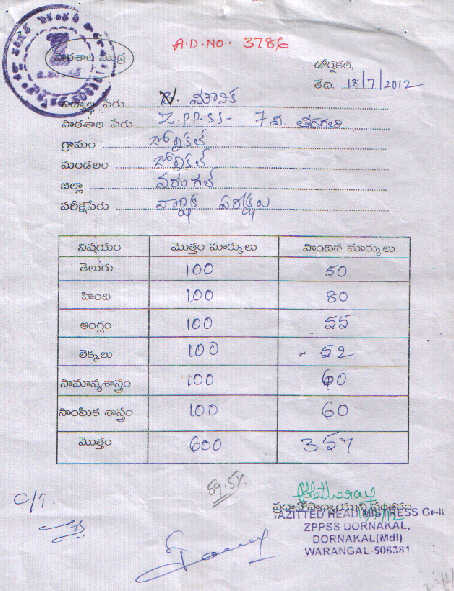 A.D.NO. 3786
పాఠశాల ముద్ర
డోర్నకల్,
తేది. 18/7/2012
విద్యార్థి పేరు మౌనిక
పాఠశాల పేరు Z.P.P.SS- 7వ తరగతి
గ్రామం డోర్నకల్
మండలం డోర్నకల్
జిల్లా వరంగల్
పరీక్షపేరు వార్షిక పరీక్షలు
విషయం మొత్తం మార్కులు పొందిన మార్కులు
తెలుగు 100 50
హింది 100 80
ఆంగ్లం 100 55
లెక్కలు 100 52
సామాన్యశాస్త్రం 100 60
సాంఘిక శాస్త్రం 100 60
మొత్తం 600 357
59.5%
C/T.
GAZITTED HEAD MISTRESS Gr-II
ZPPSS DORNAKAL,
DORNAKAL(Mdl)
WARANGAL-506381